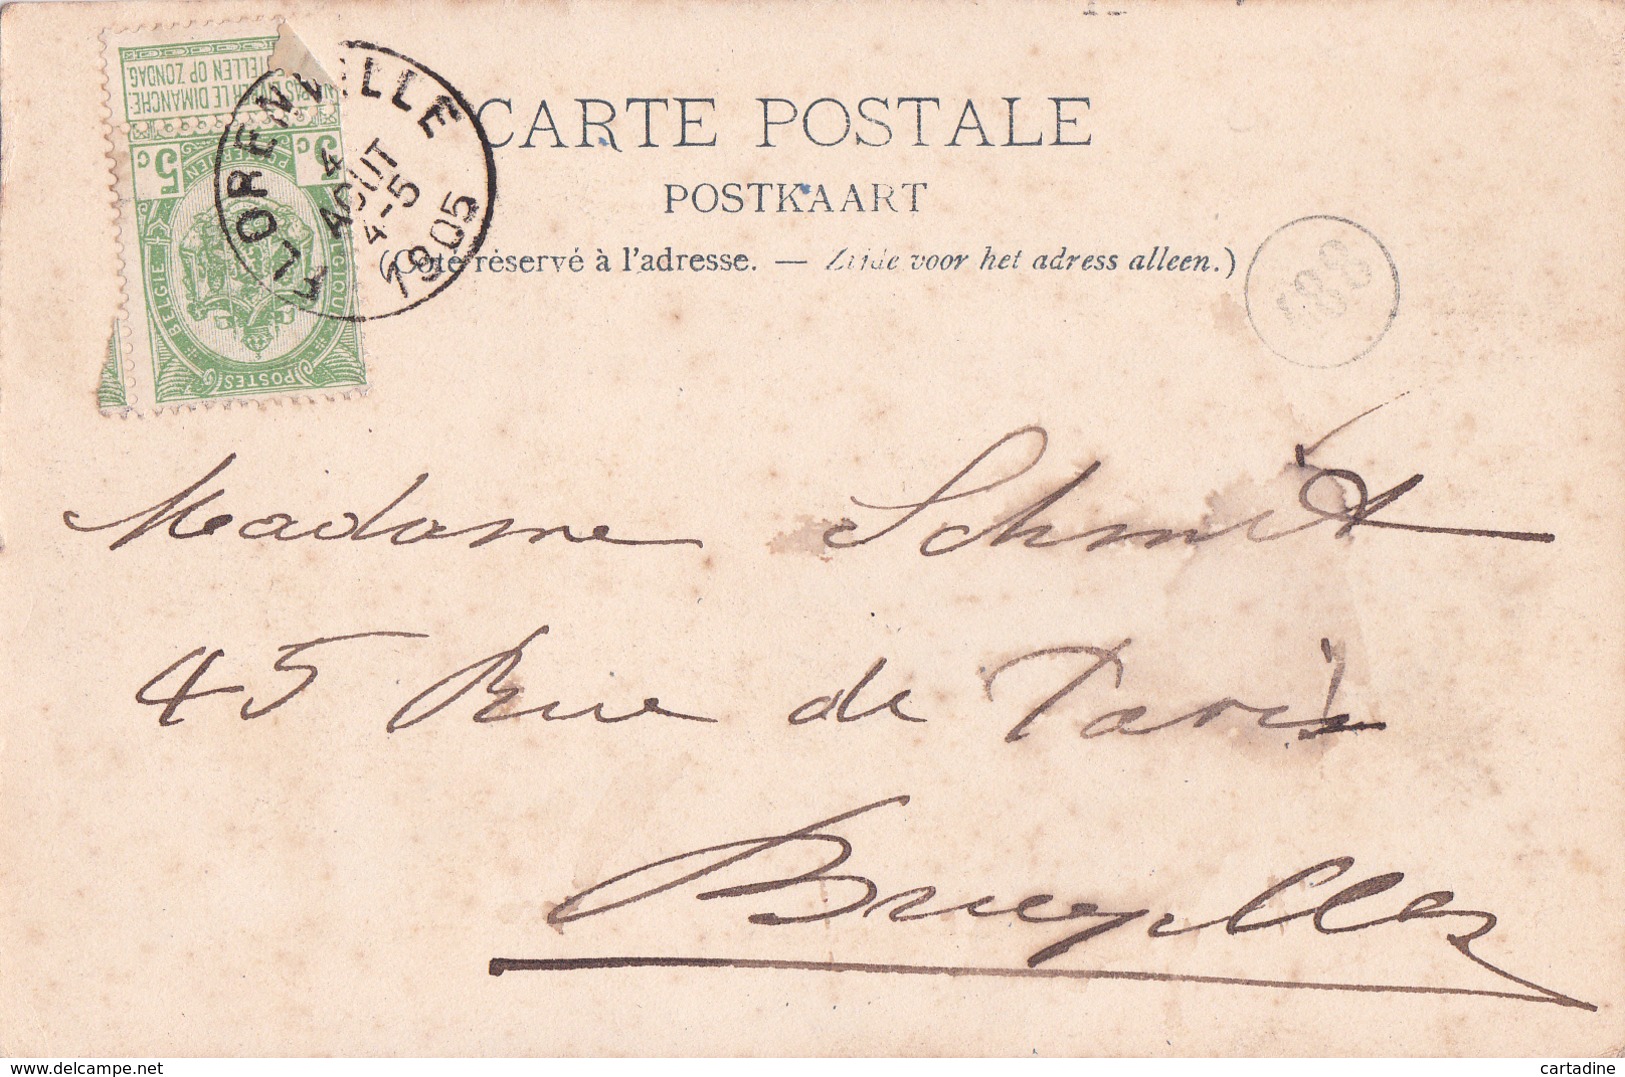 NE PAS LIVRER LE DIMANCHE
NIET BESTELLEN OP ZONDAG
5c 5c
POSTERIJEN
BELGIE BELGIQUE
POSTES
FLORENVILLE
4
AOUT
4-5
1905
CARTE POSTALE
POSTKAART
(Côté réservé à l'adresse. — Zijde voor het adress alleen.)
Madame Schmit
45 Rue de Paris
Bruxelles
delcampe.net
cartadine